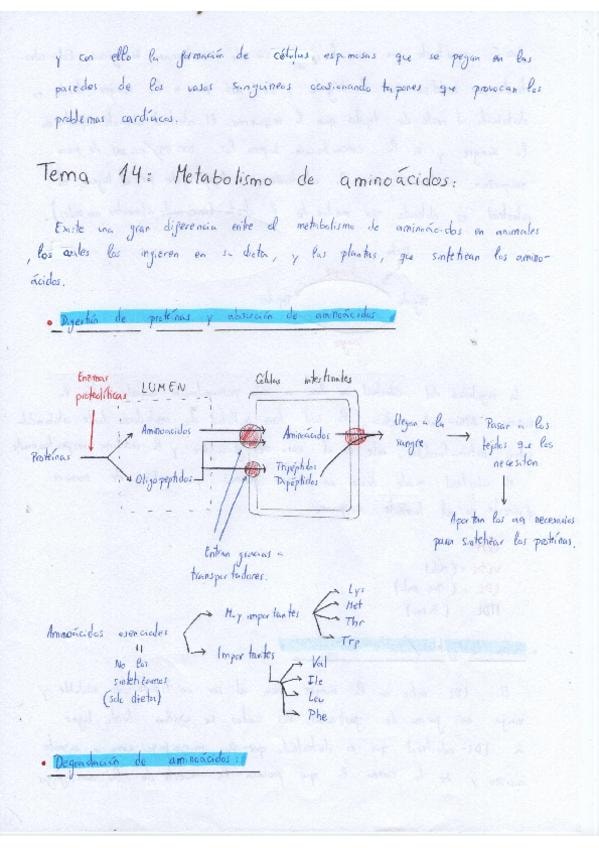 y con ello la formación de células espumosas que se pegan en las
paredes de los vasos sanguíneos ocasionando tapones que provocan los
problemas cardíacos.
Tema 14: Metabolismo de aminoácidos:
Existe una gran diferencia entre el metabolismo de aminoácidos en animales
, los cuales los ingieren en su dieta, y las plantas, que sintetizan los amino-
ácidos.
• Digestión de proteínas y absorción de aminoácidos
Enzimas
proteolíticas
LUMEN
Células intestinales
Proteínas
Aminoácidos
Oligopéptidos
Aminoácidos
Tripéptidos
Dipéptidos
Llegan a la
sangre
Pasan a los
tejidos que los
necesitan
Aportan los aa necesarios
para sintetizar las proteínas.
Entran gracias a
transportadores.
Aminoácidos esenciales
=
No los
sintetizamos
(solo dieta)
Muy importantes
Lys
Met
Thr
Trp
Importantes
Val
Ile
Leu
Phe
• Degradación de aminoácidos: